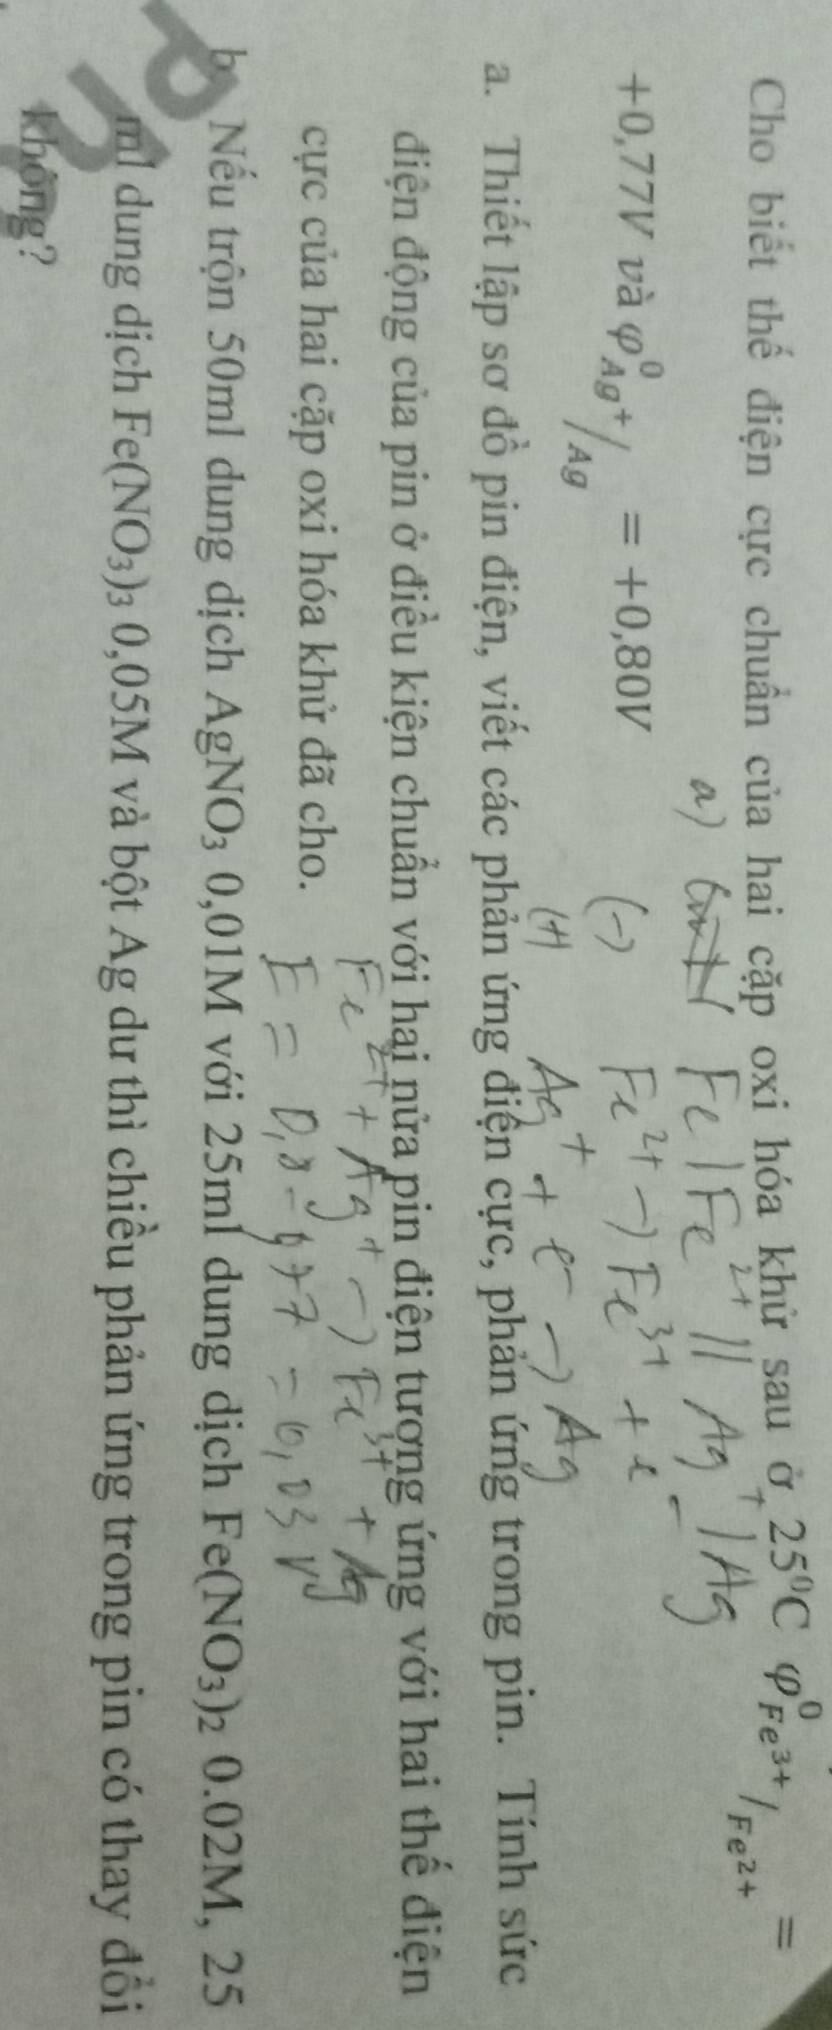 Cho biết thế điện cực chuẩn của hai cặp oxi hóa khử sau ở 25⁰C φ⁰Fe³⁺/Fe²⁺ =
+0,77V và φ⁰Ag⁺/Ag = +0,80V
a) Fe | Fe²⁺ || Ag⁺ | Ag
(-) Fe²⁺ -> Fe³⁺ + e
(+) Ag⁺ + e⁻ -> Ag
a. Thiết lập sơ đồ pin điện, viết các phản ứng điện cực, phản ứng trong pin. Tính sức
điện động của pin ở điều kiện chuẩn với hai nửa pin điện tương ứng với hai thế điện
cực của hai cặp oxi hóa khử đã cho.
Fe²⁺ + Ag⁺ -> Fe³⁺ + Ag
E = 0,8 - 0,77 = 0,03 V
b. Nếu trộn 50ml dung dịch AgNO₃ 0,01M với 25ml dung dịch Fe(NO₃)₂ 0.02M, 25
ml dung dịch Fe(NO₃)₃ 0,05M và bột Ag dư thì chiều phản ứng trong pin có thay đổi
không?